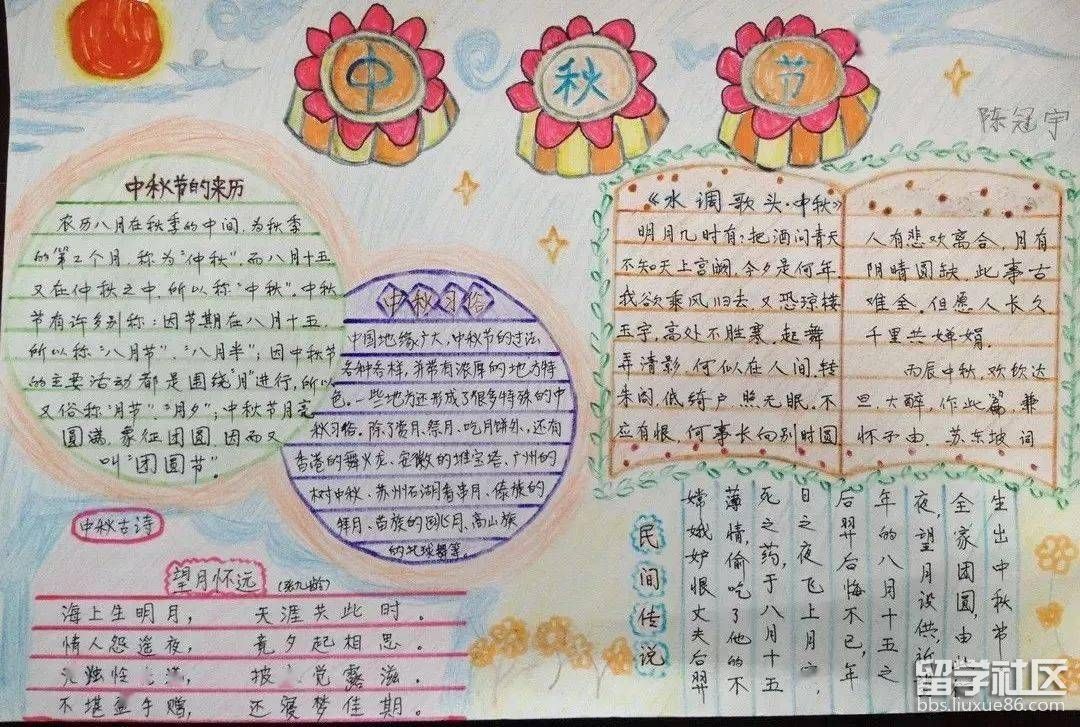 中秋节
陈冠宇
中秋节的来历
农历八月在秋季的中间,为秋季
的第2个月,称为“仲秋”,而八月十五
又在仲秋之中,所以称“中秋”。中秋
节有许多别称:因节期在八月十五
所以称“八月节”“八月半”;因中秋节
的主要活动都是围绕“月”进行,所以
又俗称“月节”“月夕”;中秋节月亮
圆满,象征团圆,因而又
叫“团圆节”。
中秋习俗
中国地缘广大,中秋节的过法
各种各样,并带有浓厚的地方特
色。一些地方还形成了很多特殊的中
秋习俗。除了赏月、祭月、吃月饼外,还有
香港的舞火龙、安徽的堆宝塔、广州的
树中秋、苏州石湖看串月、傣族的
拜月、苗族的跳月、高山族
的托球舞等。
《水调歌头·中秋》
明月几时有?把酒问青天
不知天上宫阙,今夕是何年
我欲乘风归去,又恐琼楼
玉宇,高处不胜寒,起舞
弄清影,何似在人间,转
朱阁,低绮户,照无眠。不
应有恨,何事长向别时圆
人有悲欢离合,月有
阴晴圆缺,此事古
难全。但愿人长久
千里共婵娟。
丙辰中秋,欢饮达
旦,大醉,作此篇,兼
怀子由. 苏东坡 词
中秋古诗
望月怀远
(张九龄)
海上生明月, 天涯共此时。
情人怨遥夜, 竟夕起相思。
烛 披 觉露滋。
不堪盈手赠, 还寝梦佳期。
民间传说
嫦娥妒恨丈夫后羿
薄情,偷吃了他的不
死之药,于八月十五
日之夜飞上月
后羿后悔不已,年
年的八月十五之
夜,望月设供,
全家团圆,由
生出中秋节
留学社区
bbs.liuxue86.com